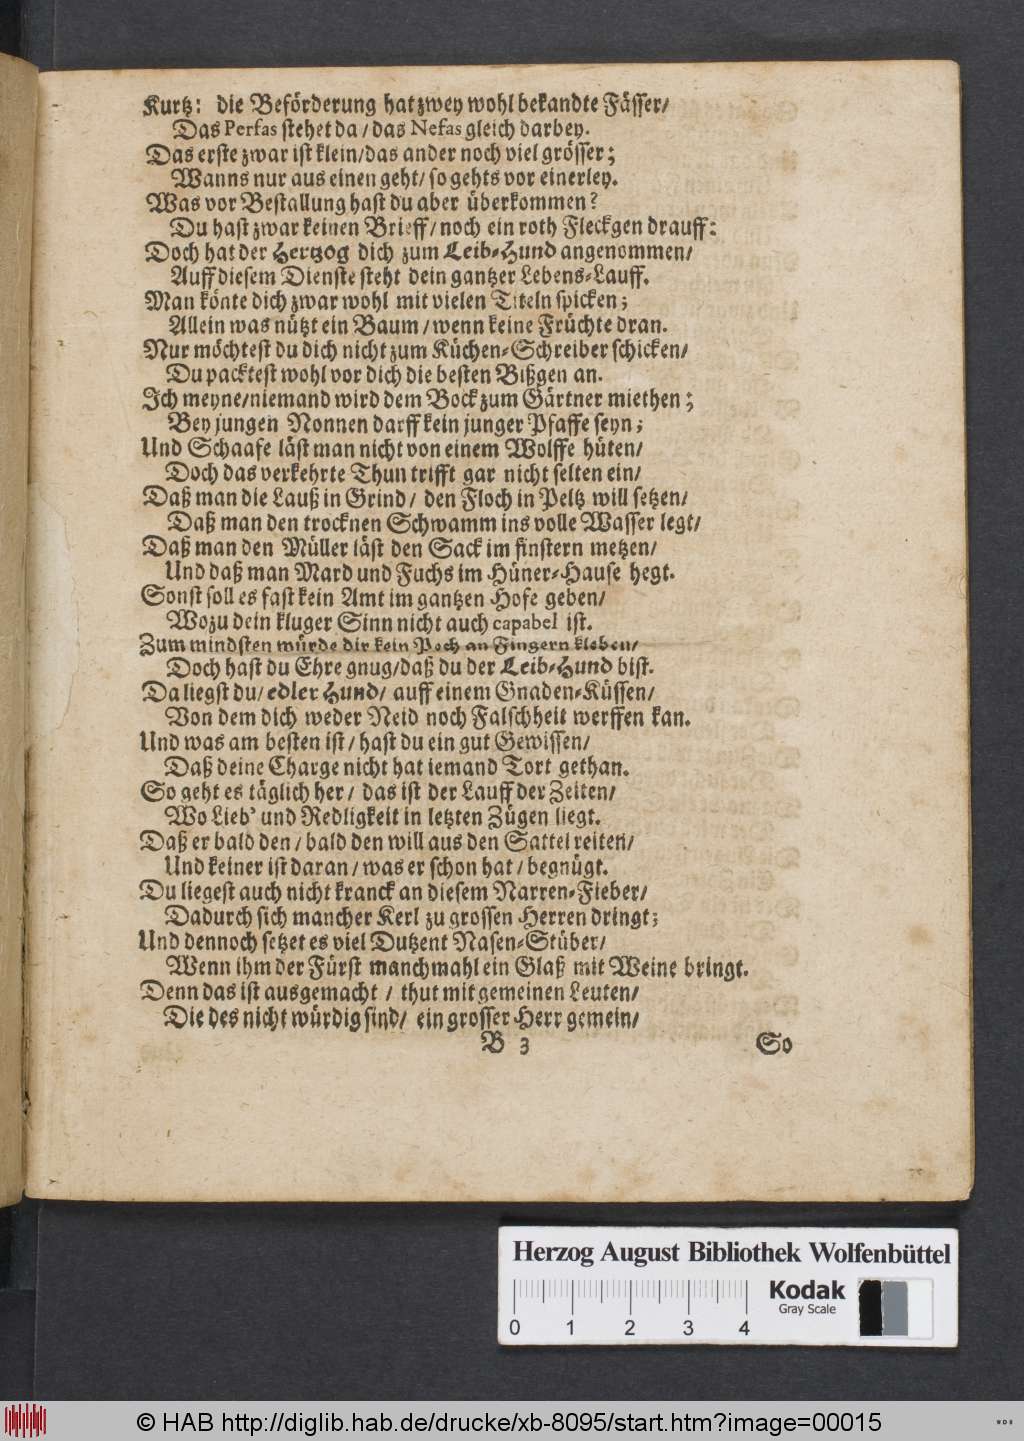 Kurtz: die Beförderung hat zwey wohl bekandte Fässer/
Das Perfas stehet da / das Nefas gleich darbey.
Das erste zwar ist klein/das ander noch viel grösser;
Wanns nur aus einen geht/ so gehts vor einerley.
Was vor Bestallung hast du aber überkommen?
Du hast zwar keinen Brieff/ noch ein roth Fleckgen drauff:
Doch hat der Hertzog dich zum Leib-Hund angenommen/
Auff diesem Dienste steht dein gantzer Lebens-Lauff.
Man könte dich zwar wohl mit vielen Titeln spicken;
Allein was nützt ein Baum / wenn keine Früchte dran.
Nur möchtest du dich nicht zum Küchen-Schreiber schicken/
Du packtest wohl vor dich die besten Bißgen an.
Ich meyne/niemand wird dem Bock zum Gärtner miethen;
Bey jungen Nonnen darff kein junger Pfaffe seyn;
Und Schaafe läst man nicht von einem Wolffe hüten/
Doch das verkehrte Thun trifft gar nicht selten ein/
Daß man die Lauß in Grind / den Floch in Peltz will setzen/
Daß man den trocknen Schwamm ins volle Wasser legt/
Daß man den Müller läst den Sack im finstern metzen/
Und daß man Mard und Fuchs im Hüner-Hause hegt.
Sonst soll es fast kein Amt im gantzen Hofe geben/
Wozu dein kluger Sinn nicht auch capabel ist.
Zum mindsten würde dir kein Pech an Fingern kleben/
Doch hast du Ehre gnug/daß du der Leib-Hund bist.
Da liegst du/ edler Hund/ auff einem Gnaden-Küssen/
Von dem dich weder Neid noch Falschheit werffen kan.
Und was am besten ist / hast du ein gut Gewissen/
Daß deine Charge nicht hat iemand Tort gethan.
So geht es täglich her / das ist der Lauff der Zeiten/
Wo Lieb' und Redligkeit in letzten Zügen liegt.
Daß er bald den / bald den will aus den Sattel reiten/
Und keiner ist daran / was er schon hat / begnügt.
Du liegest auch nicht kranck an diesem Narren-Fieber/
Dadurch sich mancher Kerl zu grossen Herren dringt;
Und dennoch setzet es viel Dutzent Nasen-Stüber/
Wenn ihm der Fürst manchmahl ein Glaß mit Weine bringt.
Denn das ist ausgemacht / thut mit gemeinen Leuten/
Die des nicht würdig sind/ ein grosser Herr gemein/
B 3 So
Herzog August Bibliothek Wolfenbüttel
Kodak
Gray Scale
0 1 2 3 4
© HAB http://diglib.hab.de/drucke/xb-8095/start.htm?image=00015